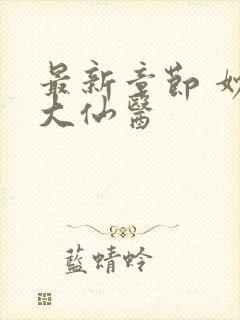 最新章節 妙
大仙醫
藍蜻蛉